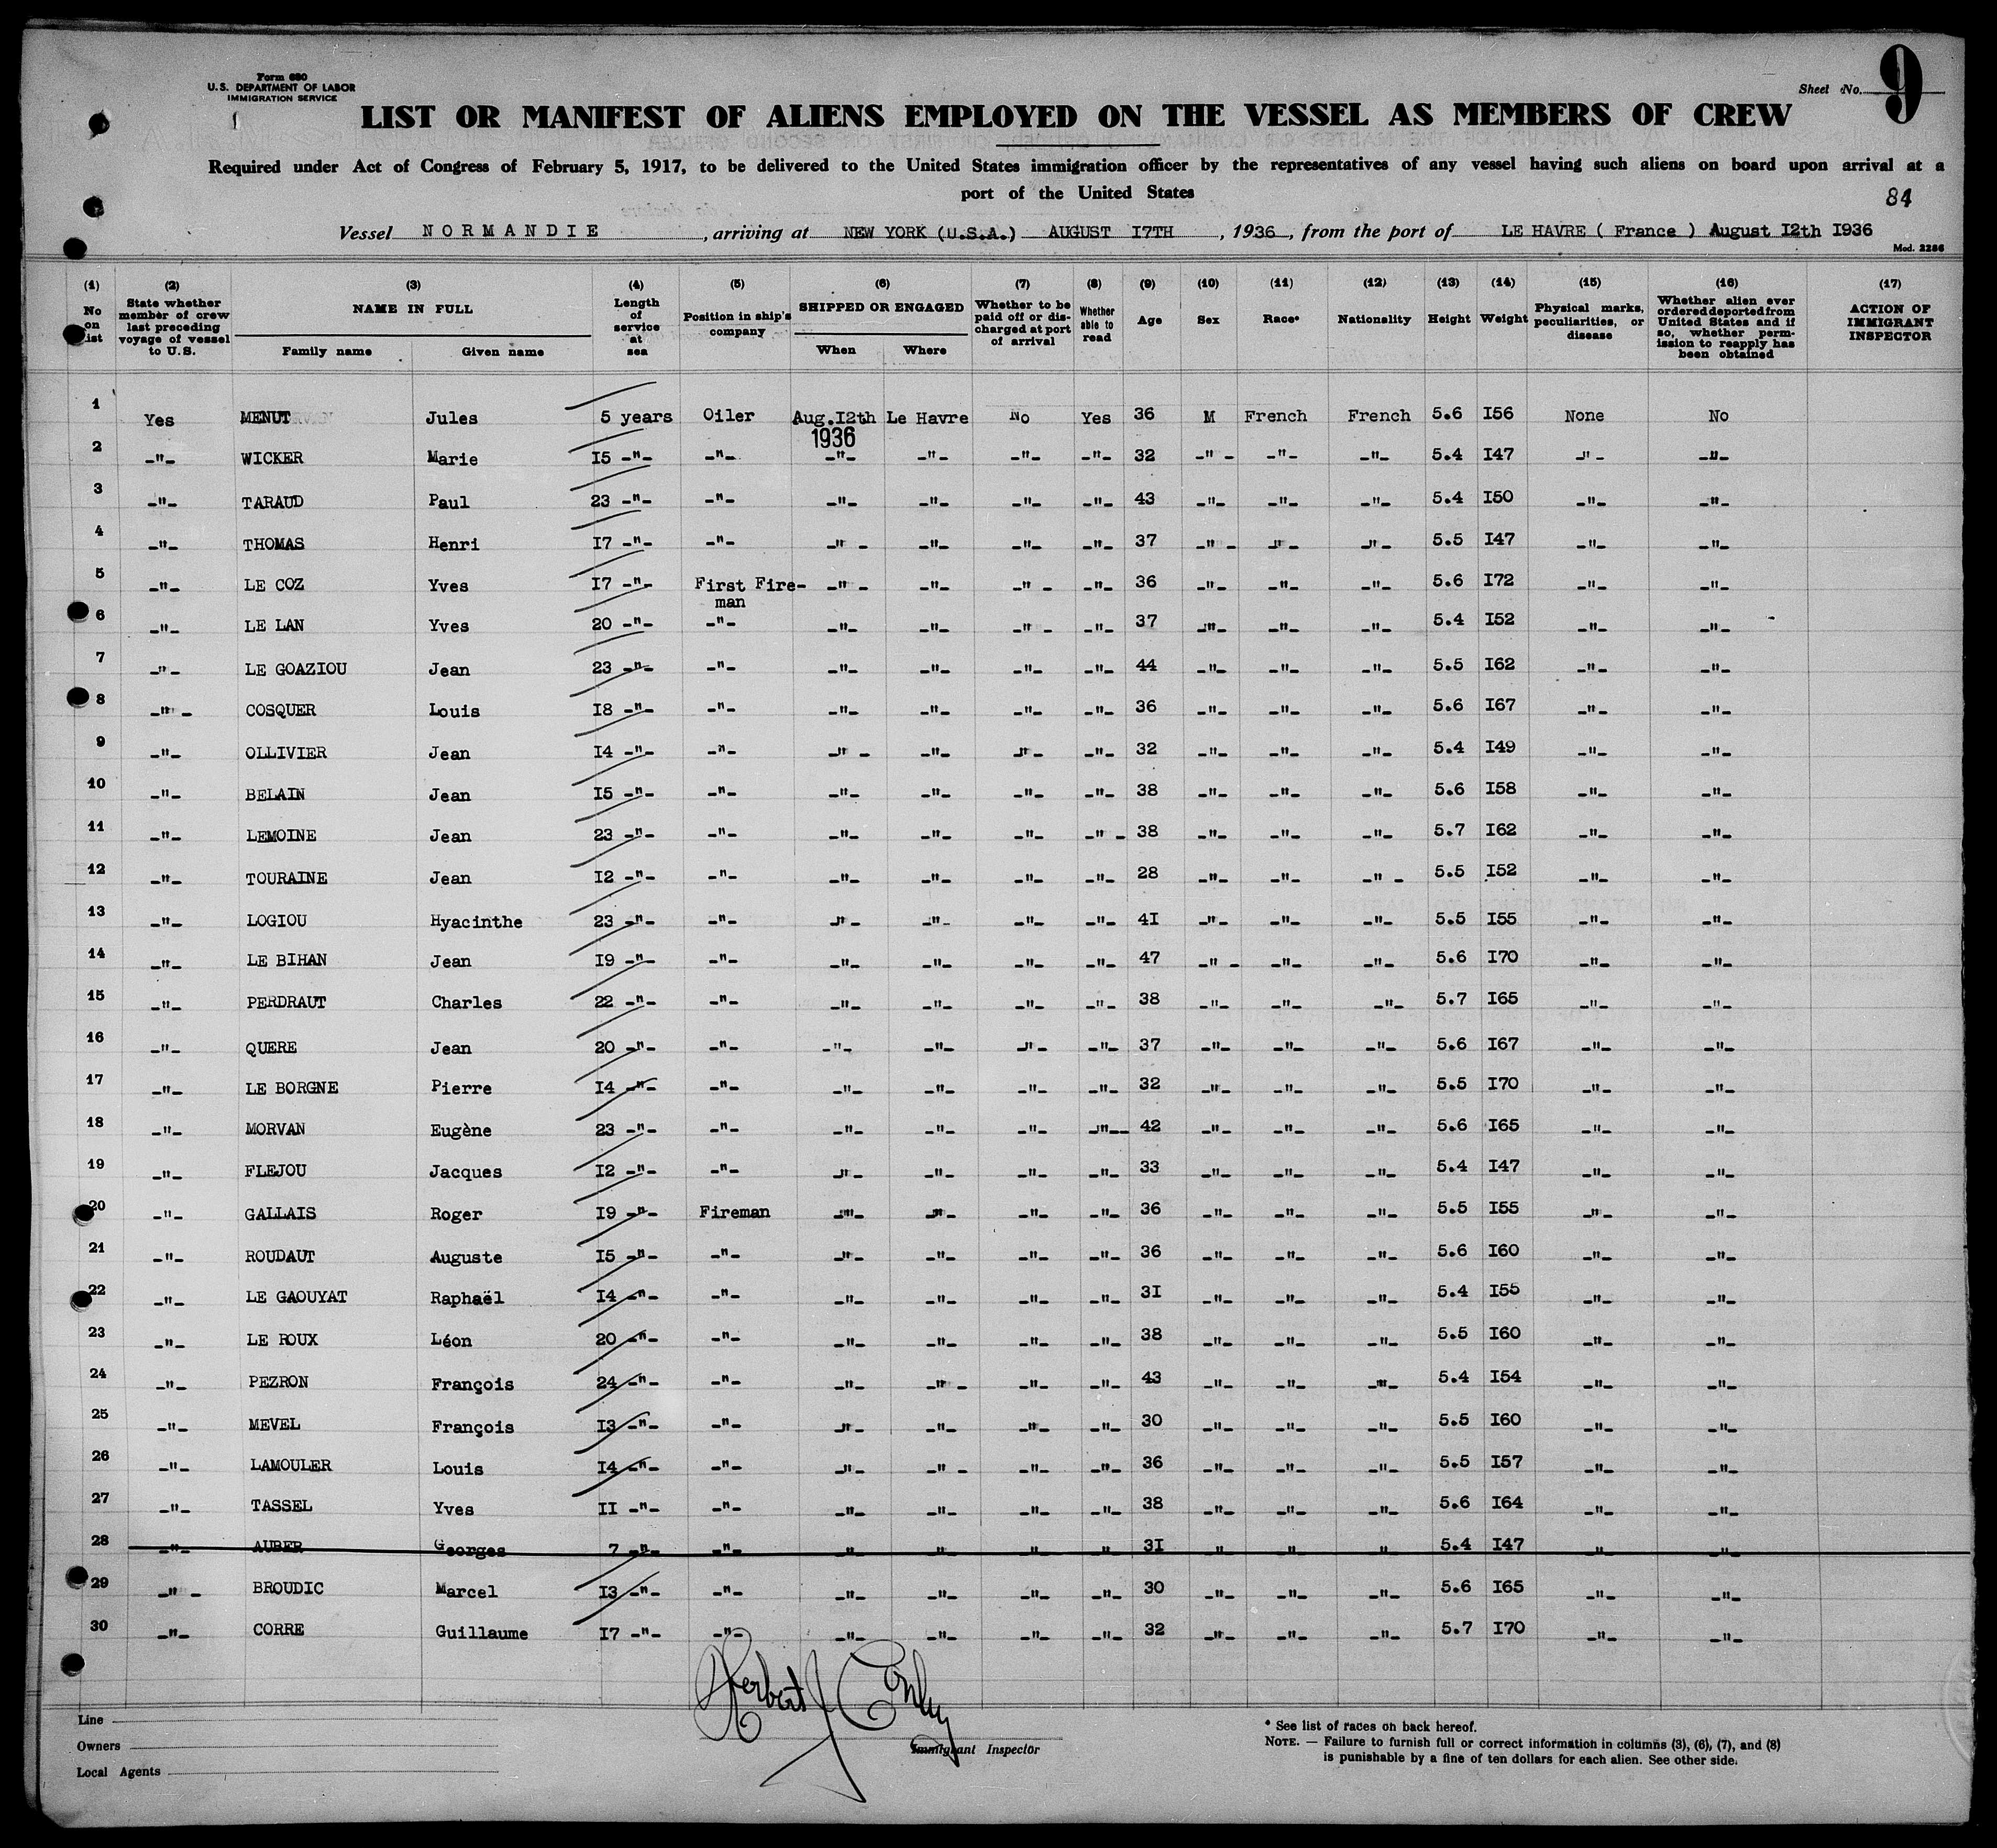 Form 680
U.S. DEPARTMENT OF LABOR
IMMIGRATION SERVICE
Sheet No. 9
LIST OR MANIFEST OF ALIENS EMPLOYED ON THE VESSEL AS MEMBERS OF CREW
Required under Act of Congress of February 5, 1917, to be delivered to the United States immigration officer by the representatives of any vessel having such aliens on board upon arrival at a
port of the United States
84
Vessel NORMANDIE, arriving at NEW YORK (U.S.A.) AUGUST I7TH, 1936, from the port of LE HAVRE ( France ) August I2th I936
Mod. 2286
(1) (2) (3) (4) (5) (6) (7) (8) (9) (10) (11) (12) (13) (14) (15) (16) (17)
No on list State whether member of crew last preceding voyage of vessel to U.S. NAME IN FULL Family name Given name Length of service at sea Position in ship's company SHIPPED OR ENGAGED When Where Whether to be paid off or discharged at port of arrival Whether able to read Age Sex Race* Nationality Height Weight Physical marks, peculiarities, or disease Whether alien ever ordered deported from United States and if so, whether permission to reapply has been obtained ACTION OF IMMIGRANT INSPECTOR
1 Yes MENUT Jules 5 years Oiler Aug.I2th 1936 Le Havre No Yes 36 M French French 5.6 I56 None No
2 -"- WICKER Marie I5 -"- -"- -"- -"- -"- -"- 32 -"- -"- -"- 5.4 I47 -"- -"-
3 -"- TARAUD Paul 23 -"- -"- -"- -"- -"- -"- 43 -"- -"- -"- 5.4 I50 -"- -"-
4 -"- THOMAS Henri I7 -"- -"- -"- -"- -"- -"- 37 -"- -"- -"- 5.5 I47 -"- -"-
5 -"- LE COZ Yves I7 -"- First Fire-man -"- -"- -"- -"- 36 -"- -"- -"- 5.6 I72 -"- -"-
6 -"- LE LAN Yves 20 -"- -"- -"- -"- -"- -"- 37 -"- -"- -"- 5.4 I52 -"- -"-
7 -"- LE GOAZIOU Jean 23 -"- -"- -"- -"- -"- -"- 44 -"- -"- -"- 5.5 I62 -"- -"-
8 -"- COSQUER Louis I8 -"- -"- -"- -"- -"- -"- 36 -"- -"- -"- 5.6 I67 -"- -"-
9 -"- OLLIVIER Jean I4 -"- -"- -"- -"- -"- -"- 32 -"- -"- -"- 5.4 I49 -"- -"-
10 -"- BELAIN Jean I5 -"- -"- -"- -"- -"- -"- 38 -"- -"- -"- 5.6 I58 -"- -"-
11 -"- LEMOINE Jean 23 -"- -"- -"- -"- -"- -"- 38 -"- -"- -"- 5.7 I62 -"- -"-
12 -"- TOURAINE Jean I2 -"- -"- -"- -"- -"- -"- 28 -"- -"- -"- 5.5 I52 -"- -"-
13 -"- LOGIOU Hyacinthe 23 -"- -"- -"- -"- -"- -"- 4I -"- -"- -"- 5.5 I55 -"- -"-
14 -"- LE BIHAN Jean I9 -"- -"- -"- -"- -"- -"- 47 -"- -"- -"- 5.6 I70 -"- -"-
15 -"- PERDRAUT Charles 22 -"- -"- -"- -"- -"- -"- 38 -"- -"- -"- 5.7 I65 -"- -"-
16 -"- QUERE Jean 20 -"- -"- -"- -"- -"- -"- 37 -"- -"- -"- 5.6 I67 -"- -"-
17 -"- LE BORGNE Pierre I4 -"- -"- -"- -"- -"- -"- 32 -"- -"- -"- 5.5 I70 -"- -"-
18 -"- MORVAN Eugène 23 -"- -"- -"- -"- -"- -"- 42 -"- -"- -"- 5.6 I65 -"- -"-
19 -"- FLEJOU Jacques I2 -"- -"- -"- -"- -"- -"- 33 -"- -"- -"- 5.4 I47 -"- -"-
20 -"- GALLAIS Roger I9 -"- Fireman -"- -"- -"- -"- 36 -"- -"- -"- 5.5 I55 -"- -"-
21 -"- ROUDAUT Auguste I5 -"- -"- -"- -"- -"- -"- 36 -"- -"- -"- 5.6 I60 -"- -"-
22 -"- LE GAOUYAT Raphaël I4 -"- -"- -"- -"- -"- -"- 3I -"- -"- -"- 5.4 I55 -"- -"-
23 -"- LE ROUX Léon 20 -"- -"- -"- -"- -"- -"- 38 -"- -"- -"- 5.5 I60 -"- -"-
24 -"- PEZRON François 24 -"- -"- -"- -"- -"- -"- 43 -"- -"- -"- 5.4 I54 -"- -"-
25 -"- MEVEL François I3 -"- -"- -"- -"- -"- -"- 30 -"- -"- -"- 5.5 I60 -"- -"-
26 -"- LAMOULER Louis I4 -"- -"- -"- -"- -"- -"- 36 -"- -"- -"- 5.5 I57 -"- -"-
27 -"- TASSEL Yves II -"- -"- -"- -"- -"- -"- 38 -"- -"- -"- 5.6 I64 -"- -"-
28 -"- AUBER Georges 7 -"- -"- -"- -"- -"- -"- 3I -"- -"- -"- 5.4 I47 -"- -"-
29 -"- BROUDIC Marcel I3 -"- -"- -"- -"- -"- -"- 30 -"- -"- -"- 5.6 I65 -"- -"-
30 -"- CORRE Guillaume I7 -"- -"- -"- -"- -"- -"- 32 -"- -"- -"- 5.7 I70 -"- -"-
Herbert J
Line
Owners
Local Agents
Immigrant Inspector
* See list of races on back hereof.
NOTE. — Failure to furnish full or correct information in columns (3), (6), (7), and (8)
is punishable by a fine of ten dollars for each alien. See other side.